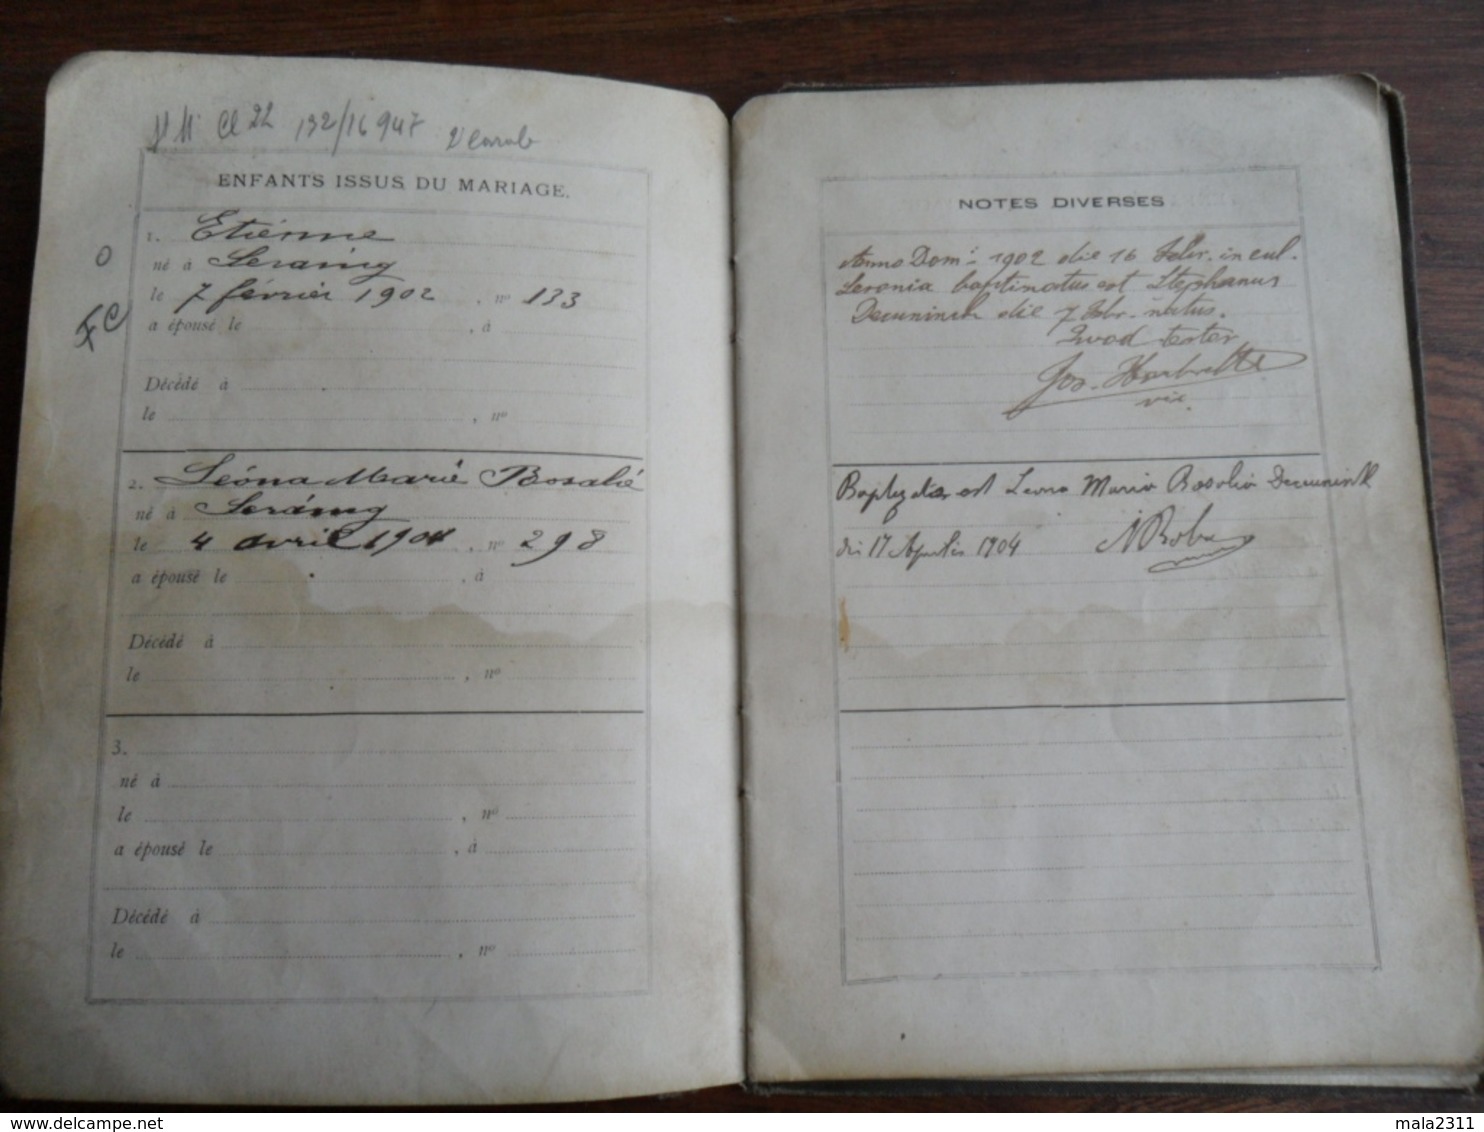 Cl 22 132/16947
ENFANTS ISSUS DU MARIAGE.
1. Etienne
né à Seraing
le 7 février 1902, nº 133
a épousé le , à
Décédé à
le , nº
FC
2. Léona Marie Rosalie
né à Seraing
le 4 avril 1904, nº 298
a épousé le , à
Décédé à
le , nº
3.
né à
le , nº
a épousé le , à
Décédé à
le , nº
NOTES DIVERSES
Anno Domi 1902 die 16 Febr. in eccl.
Serania baptizatus est Stephanus
Decuninck die 7 Febr. natus.
Quod testor
Jos.
vic.
Baptizata est Leona Maria Rosalia Decuninck
die 17 Aprilis 1904
delcampe.net
mala2311